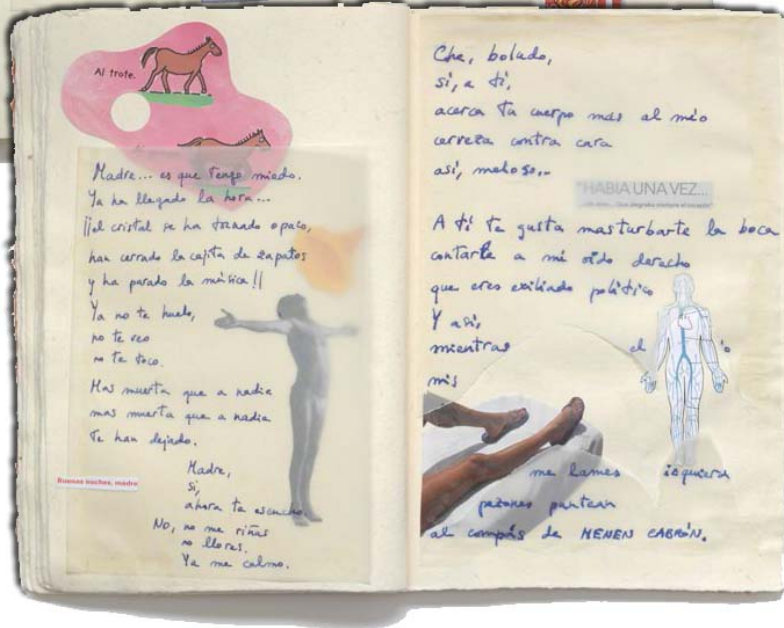 Al trote.
Madre... es que tengo miedo.
Ya ha llegado la hora...
¡¡el cristal se ha tornado opaco,
han cerrado la cajita de zapatos
y ha parado la música!!
Ya no te huelo,
no te veo
no te toco.
Mas muerta que a nadie
mas muerta que a nadie
te han dejado.
Madre,
si,
ahora te escucho
No, no me riñas
no llores.
Ya me calmo.
Buenas noches, madre
Che, boludo,
si, a ti,
acerca tu cuerpo mas al mío
cerveza contra cara
así, meloso...
"HABIA UNA VEZ...
A tí te gusta masturbarte la boca
contarle a mi oido derecho
que eres exiliado político
Y así,
mientras el
mis
me lames izquierda
pezones puntean
al compás de MENEN CABRÓN.